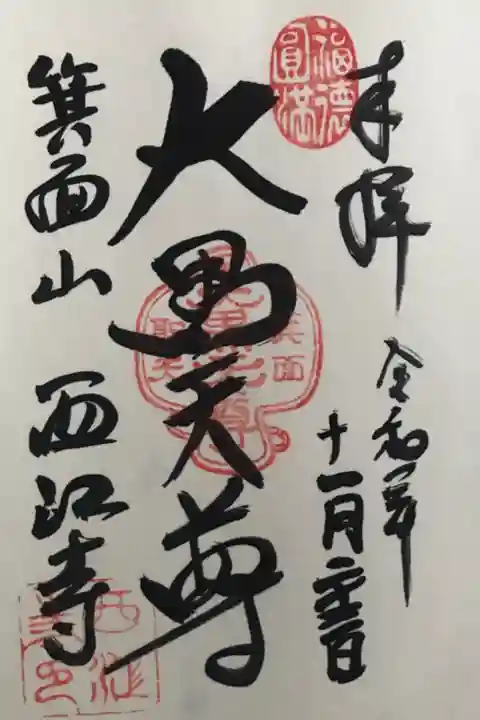 奉拝
令和
十一月
福德
圓満
大黒天尊
箕面
聖天
箕面山 西江寺